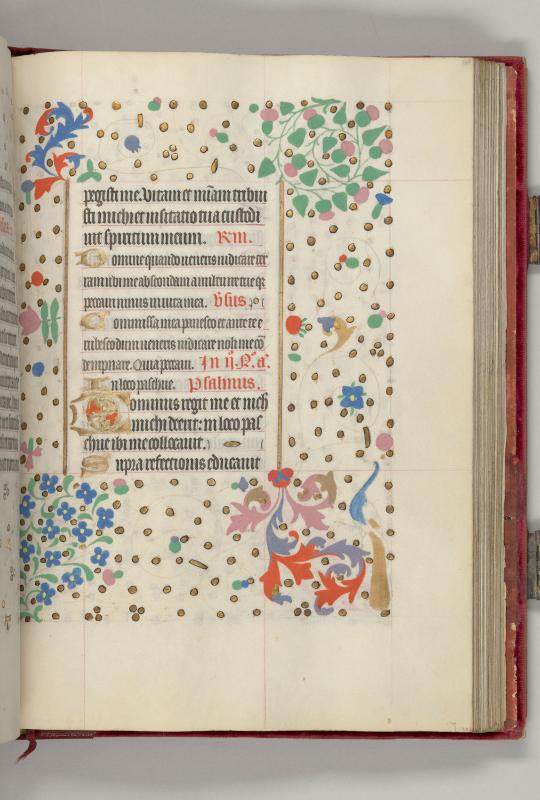 pegisti me. Vitam et m̄iam tribui
sti michi et visitatio tua custodi
uit spiritum meum. Rm̄.
Domine quando veneris iudicare ter
ram ubi me abscondam a vultu ire tue q̄
peccaui nimis in vita mea. v̄sus
Commissa mea pauesco et ante te e
rubesco dum veneris iudicare noli me cō
dempnare. Quia peccaui. In ij. N̄. a̅.
In loco paschue. Psalmus.
Dominus regit me et nich
michi deerit: in loco pas
chue ibi me collocauit.
Supra refectionis educauit